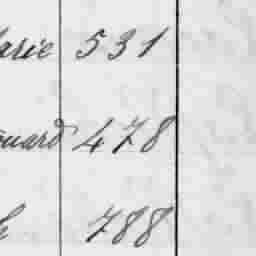 arie 531
ouard 478
788